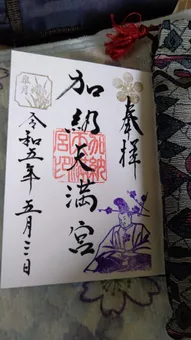 奉拝
加納天満宮
加納天満宮印
皐月
令和五年五月三日